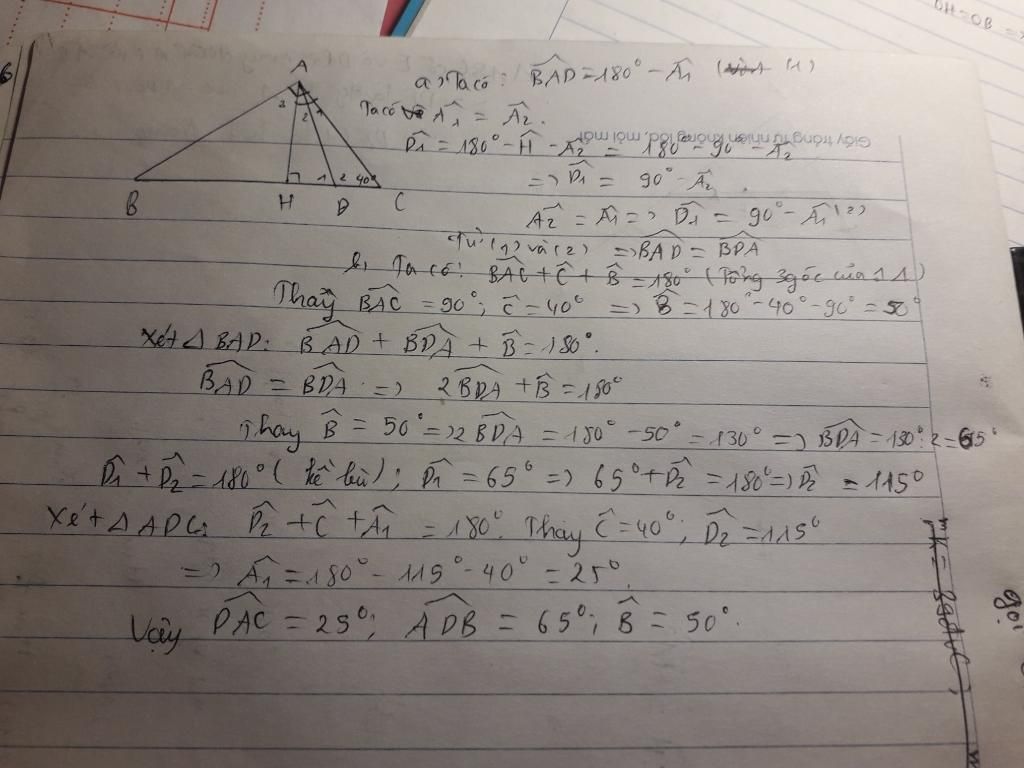 OH=OB =>
6
A
3 2 1
1 2 40°
B H D C
a, Ta có: BAD^ = 180° - A1^ (1)
Ta có A1^ = A2^.
Giấy trắng tự nhiên không lóa, mỏi mắt
D1^ = 180° - H^ - A2^ = 180° - 90° - A2^
=> D1^ = 90° - A2^.
A2^ = A1^ => D1^ = 90° - A1^ (2)
Từ (1) và (2) => BAD^ = BDA^
b, Ta có: BAC^ + C^ + B^ = 180° (Tổng 3 góc của 1 Δ)
Thay BAC^ = 90°; C^ = 40° => B^ = 180° - 40° - 90° = 50°
Xét Δ BAD: BAD^ + BDA^ + B^ = 180°.
BAD^ = BDA^ => 2BDA^ + B^ = 180°
Thay B^ = 50° => 2BDA^ = 180° - 50° = 130° => BDA^ = 130°: 2 = 65°
D1^ + D2^ = 180° (kề bù); D1^ = 65° => 65° + D2^ = 180° => D2^ = 115°
Xét Δ ADC: D2^ + C^ + A1^ = 180°. Thay C^ = 40°; D2^ = 115°
=> A1^ = 180° - 115° - 40° = 25°.
Vậy DAC^ = 25°; ADB^ = 65°; B^ = 50°.